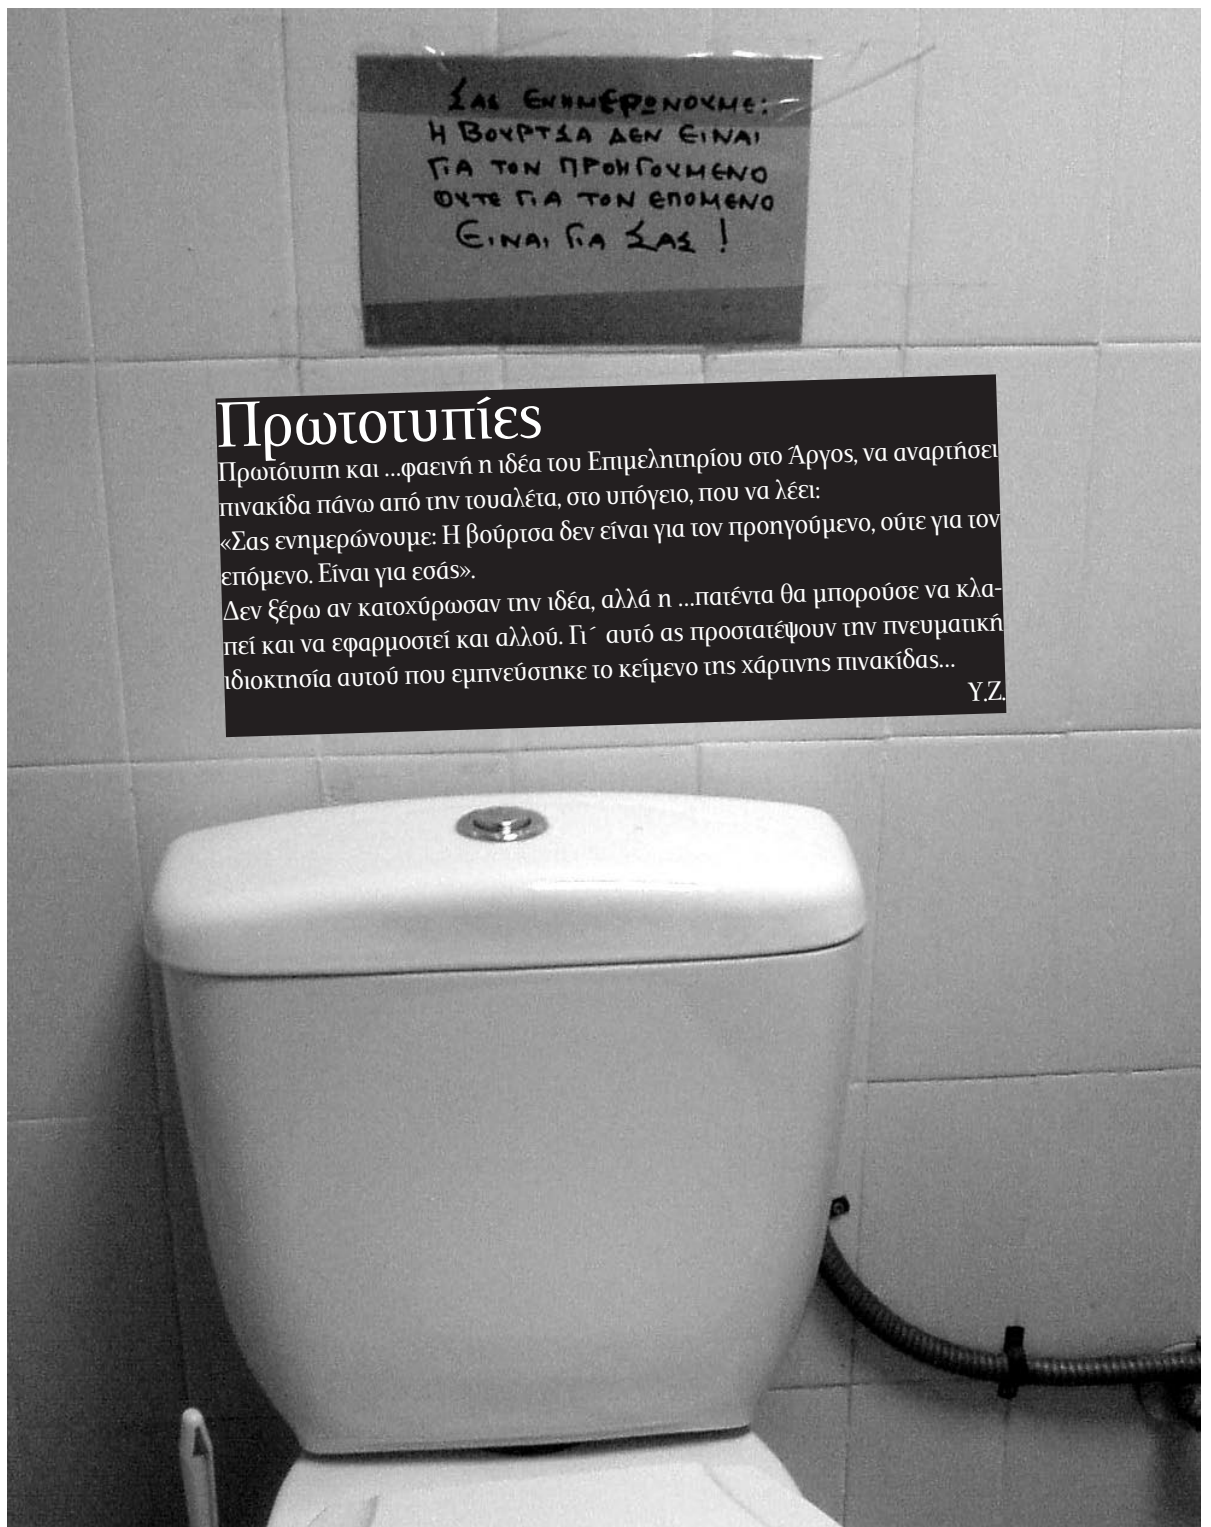 Σας ΕΝΗΜΕΡΩΝΟΥΜΕ:
Η ΒΟΥΡΤΣΑ ΔΕΝ ΕΙΝΑΙ
ΓΙΑ ΤΟΝ ΠΡΟΗΓΟΥΜΕΝΟ
ΟΥΤΕ ΓΙΑ ΤΟΝ ΕΠΟΜΕΝΟ
ΕΙΝΑΙ ΓΙΑ ΣΑΣ !
Πρωτοτυπίες
Πρωτότυπη και ...φαεινή η ιδέα του Επιμελητηρίου στο Άργος, να αναρτήσει
πινακίδα πάνω από την τουαλέτα, στο υπόγειο, που να λέει:
«Σας ενημερώνουμε: Η βούρτσα δεν είναι για τον προηγούμενο, ούτε για τον
επόμενο. Είναι για εσάς».
Δεν ξέρω αν κατοχύρωσαν την ιδέα, αλλά η ...πατέντα θα μπορούσε να κλα-
πεί και να εφαρμοστεί και αλλού. Γι´ αυτό ας προστατέψουν την πνευματική
ιδιοκτησία αυτού που εμπνεύστηκε το κείμενο της χάρτινης πινακίδας...
Υ.Ζ.